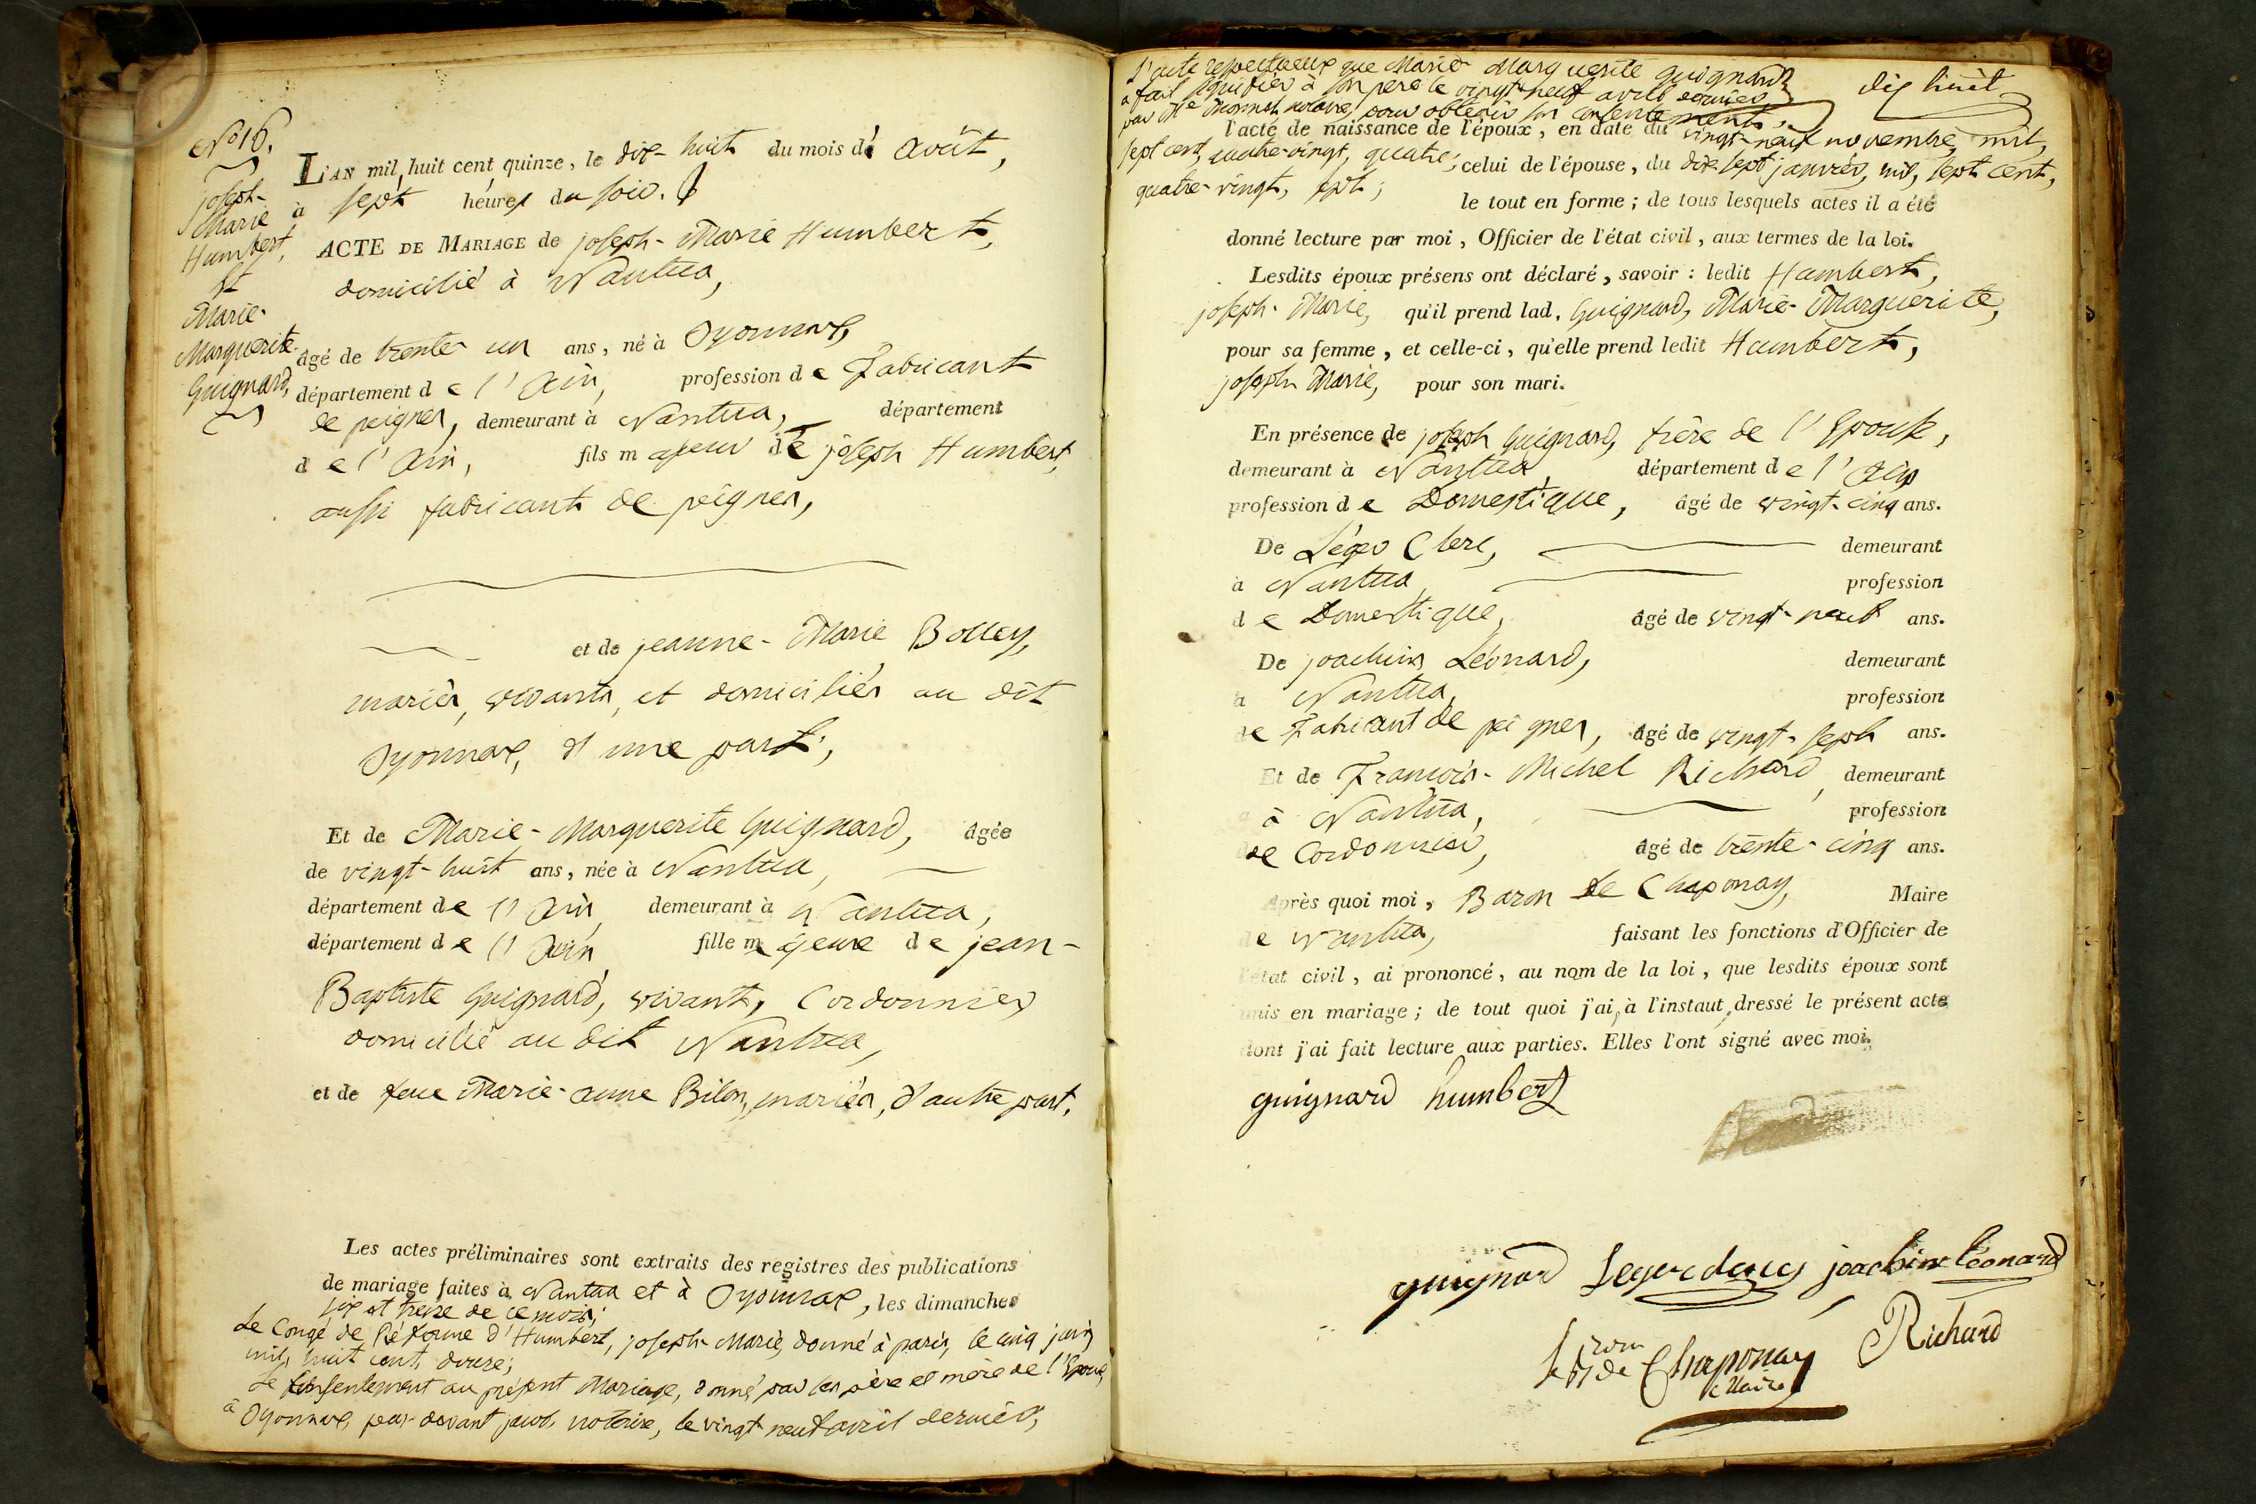 N.º 16.
joseph-
Marie
Humbert,
Et
Marie-
Marguerite
Guignard,
L'AN mil huit cent quinze, le dix-huit du mois d' Août,
à sept heures du soir.
ACTE DE MARIAGE de joseph-Marie Humbert,
domicilié à Nantua,
âgé de trente un ans, né à Oyonnax,
département de l'Ain, profession de Fabricant
de peignes, demeurant à Nantua, département
de l'Ain, fils majeur de joseph Humbert,
aussi fabricant de peignes,
et de jeanne-Marie Bolley,
mariés, vivants, et domiciliés au dit
Oyonnax, d'une part;
Et de Marie-Marguerite Guignard, âgée
de vingt-huit ans, née à Nantua,
département de l'Ain demeurant à Nantua,
département de l'Ain fille majeure de jean-
Baptiste Guignard, vivant, Cordonnier
domicilié au dit Nantua,
et de feue Marie-anne Bilon, mariés, d'autre part.
Les actes préliminaires sont extraits des registres des publications
de mariage faites à Nantua et à Oyonnax, les dimanches
six et treize de ce mois;
Le Congé de Réforme d'Humbert, joseph-Marie, donné à paris, le cinq juin
mil, huit cent, douze;
Le Consentement au présent Mariage, donné par les père et mère de l'Epoux,
à Oyonnax, par-devant notaire, le vingt-neuf avril dernier,
dix huit
L'acte respectueux que Marie Marguerite Guignard
a fait signifier à son père le vingt-neuf avril dernier
par Me notaire, pour obtenir son consentement;
l'acte de naissance de l'époux, en date du vingt-neuf novembre, mil,
sept cent, quatre-vingt, quatre; celui de l'épouse, du dix sept janvier, mil, sept cent,
quatre-vingt, sept;
le tout en forme; de tous lesquels actes il a été
donné lecture par moi, Officier de l'état civil, aux termes de la loi.
Lesdits époux présens ont déclaré, savoir: ledit Humbert,
joseph-Marie, qu'il prend lad. Guignard, Marie-Marguerite,
pour sa femme, et celle-ci, qu'elle prend ledit Humbert,
joseph Marie, pour son mari.
En présence de joseph Guignard, frère de l'Epouse,
demeurant à Nantua département de l'Ain
profession de Domestique, âgé de vingt-cinq ans.
De Léger Clerc, demeurant
à Nantua, profession
de Domestique, âgé de vingt-neuf ans.
De joachim Léonard, demeurant
à Nantua, profession
de Fabricant de peignes, âgé de vingt-sept ans.
Et de François-Michel Richard, demeurant
à Nantua, profession
de Cordonnier, âgé de trente-cinq ans.
Après quoi moi, Baron de Chaponay, Maire
de Nantua, faisant les fonctions d'Officier de
l'état civil, ai prononcé, au nom de la loi, que lesdits époux sont
unis en mariage; de tout quoi j'ai, à l'instaut, dressé le présent acte
dont j'ai fait lecture aux parties. Elles l'ont signé avec moi.
guignard humbert
guignard Leger clerc joachim Léonard
Le Bon de Chaponay Richard
Maire